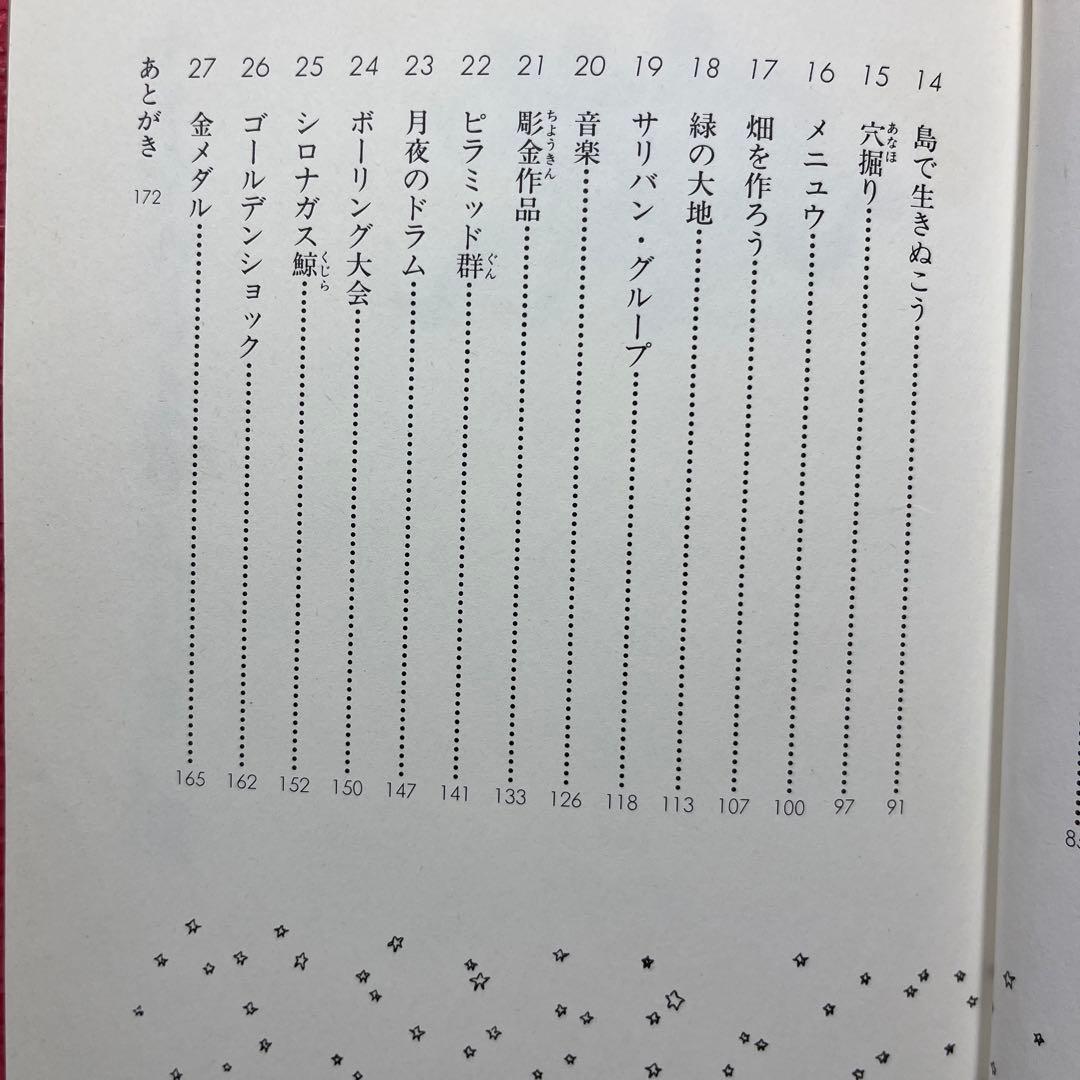 14 島で生きぬこう 91
15 穴掘り 97
あなほ
16 メニュウ 100
17 畑を作ろう 107
18 緑の大地 113
19 サリバン・グループ 118
20 音楽 126
21 彫金作品 133
ちょうきん
22 ピラミッド群 141
ぐん
23 月夜のドラム 147
24 ボーリング大会 150
25 シロナガス鯨 152
くじら
26 ゴールデンショック 162
27 金メダル 165
あとがき 172